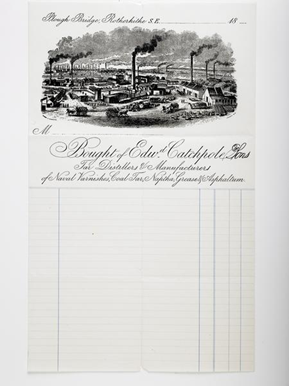 Plough Bridge, Rotherhithe S.E. 18
M
Bought of Edw.d Catchpole & Sons
Tar Distillers & Manufacturers
of Naval Varnishes, Coal Tar, Naptha, Grease & Asphaltum.